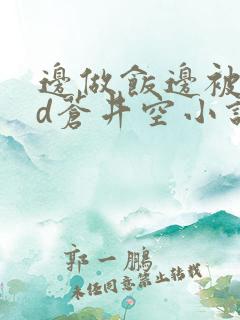 邊做飯邊被
d蒼井空小說
郭一鵬
未经同意禁止转载